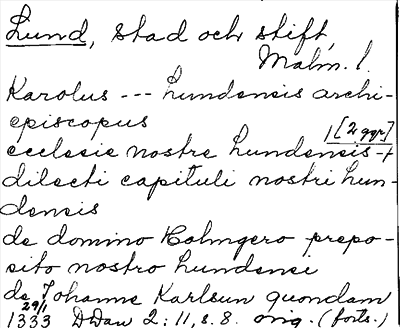 Lund, stad och stift,
Malm. l.
Karolus --- Lundensis archi-
episcopus
ecclesie nostre Lundensis + 1 [2 ggr]
dilecti capituli nostri Lun-
densis
de domino Holmgero prepo-
sito nostro Lundensi
de Johanne Karlsun quondam
29/1
1333 DDan 2:11, s. 8 orig. (forts.)